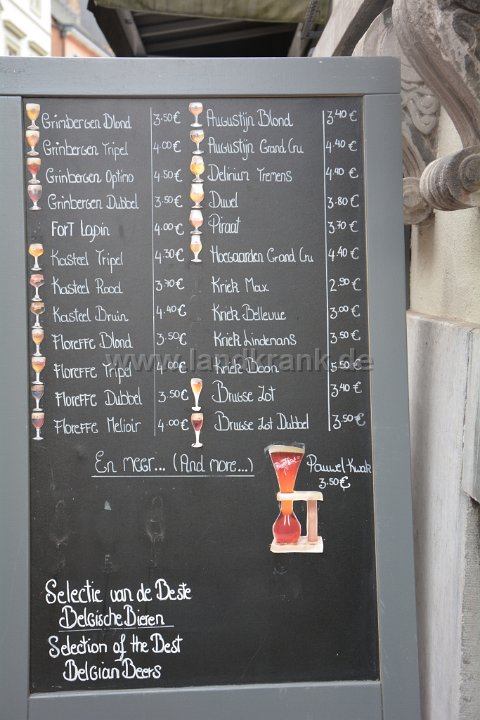 Grimbergen Blond 3.50€
Grimbergen Tripel 4.00€
Grimbergen Optimo 4.50€
Grimbergen Dubbel 3.50€
Fort Lapin 4.00€
Kasteel Tripel 4.30€
Kasteel Rood 3.70€
Kasteel Bruin 4.40€
Floreffe Blond 3.50€
Floreffe Tripel 4.00€
Floreffe Dubbel 3.50€
Floreffe Melioir 4.00€
Augustijn Blond 3.40€
Augustijn Grand Cru 4.40€
Delirium Tremens 4.40€
Duvel 3.80€
Piraat 3.70€
Hoegaarden Grand Cru 4.40€
Kriek Max 2.90€
Kriek Bellevue 3.00€
Kriek Lindemans 3.50€
Kriek Boon 3.50€
Brugse Zot 3.40€
Brugse Zot Dubbel 3.50€
www.landkrank.de
En meer... (And more...)
Pauwel Kwak
3.50€
Selectie van de Beste
Belgische Bieren
Selection of the Best
Belgian Beers